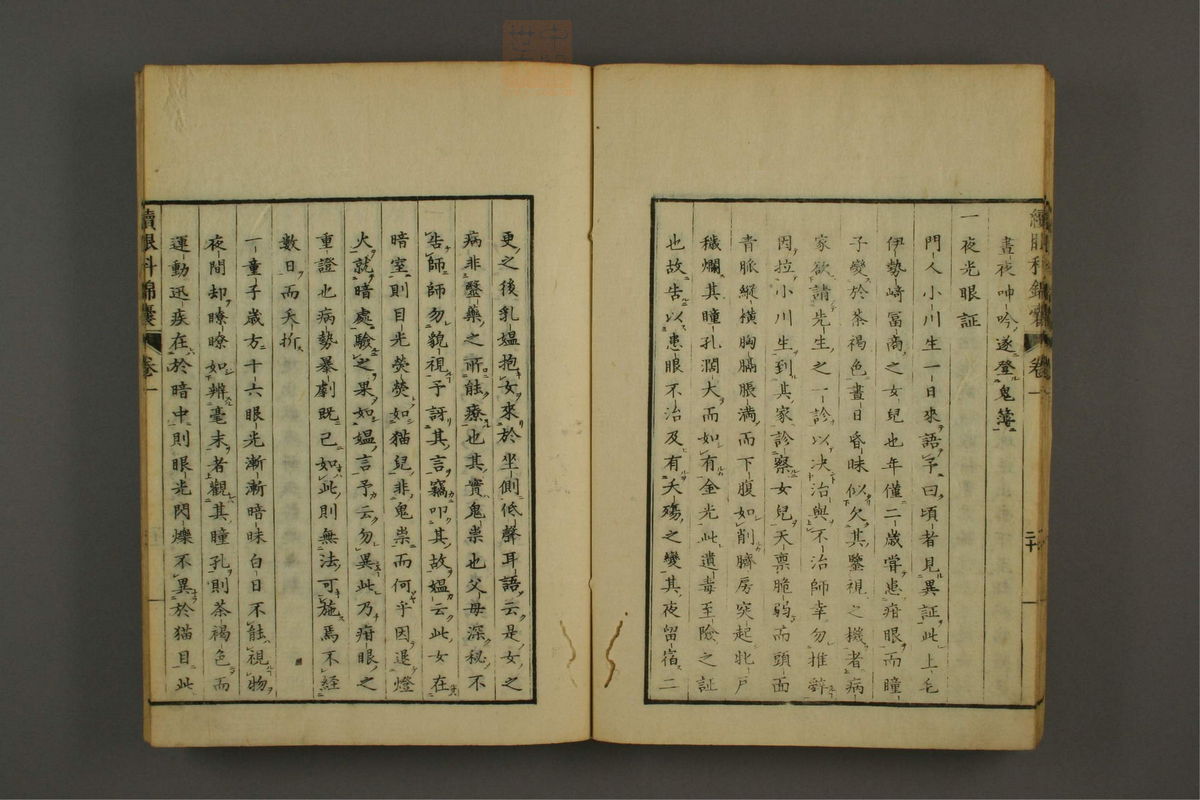 晝夜呻吟遂登鬼簿
一夜光眼証
門人小川生一日來語予曰頃者見異証此上毛
伊勢崎冨商之女兒也年僅二歳嘗患疳眼而瞳
子變於茶褐色晝日昏昧似欠其鑒視之機者病
家欲請先生之一診以决治與不治師幸勿推辤
因拉小川生到其家診察女兒天禀脆弱而頭面
青脈縱横胸膈脹満而下腹如削臍房突起牝戸
穢爛其瞳孔濶大而如有金光此遺毒至險之証
也故告以患眼不治及有夭殤之變其夜留宿二
續眼科錦囊 卷一 二十
更之後乳媼抱女來於坐側低聲耳語云是女之
病非毉藥之所能療也其實鬼祟也父母深秘不
告師師勿貌視予訝其言竊叩其故媼云此女在
暗室則目光熒熒如猫兒非鬼祟而何乎因退燈
火就暗處驗之果如媼言予云勿異此乃疳眼之
重證也病勢暴劇既已如此則無法可施焉不經
數日而夭折
一童子歳方十六眼光漸漸暗昧白日不能視物
夜間却瞭瞭如辨毫末者觀其瞳孔則茶褐色而
運動迅疾在於暗中則眼光閃爍不異於猫目此
續眼科錦囊 卷一